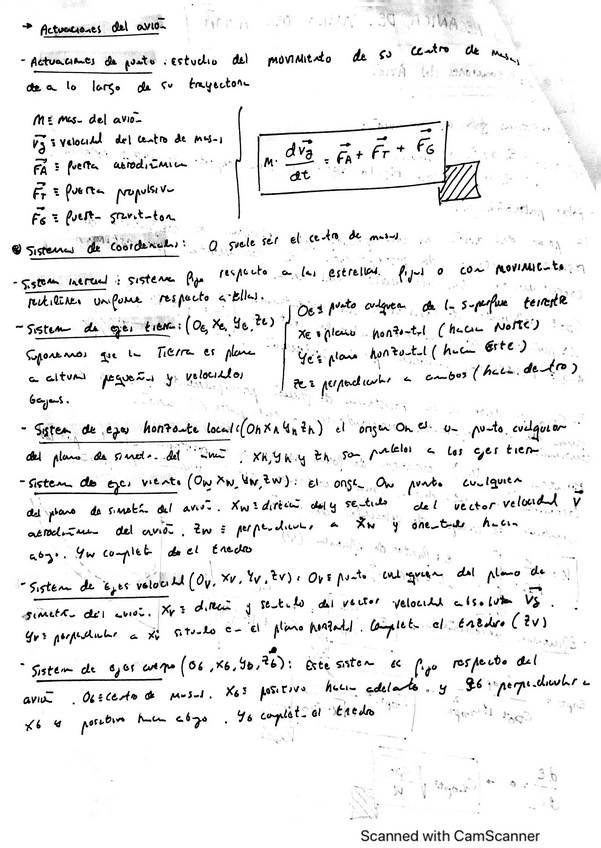 → Actuaciones del avión
- Actuaciones de punto: estudio del movimiento de su centro de masas
de a lo largo de su trayectoria
M ≡ masa del avión
Vg ≡ velocidad del centro de masas
FA ≡ fuerza aerodinámica
FT ≡ fuerza propulsiva
FG ≡ fuerza gravitatoria
M · dVg/dt = FA + FT + FG
Sistemas de coordenadas: O suele ser el centro de masas
- Sistema inercial: sistema fijo respecto a las estrellas fijas o con movimiento
rectilíneo uniforme respecto a ellas.
- Sistema de ejes tierra: (Oe, Xe, Ye, Ze)
Suponemos que la Tierra es plana
a alturas pequeñas y velocidades
bajas.
Oe ≡ punto cualquiera de la superficie terrestre
Xe ≡ plano horizontal (hacia Norte)
Ye ≡ plano horizontal (hacia Este)
Ze ≡ perpendicular a ambos (hacia dentro)
- Sistema de ejes horizonte local: (Oh Xh Yh Zh) el origen Oh es un punto cualquiera
del plano de simetría del avión. Xh, Yh y Zh son paralelos a los ejes tierra
- Sistema de ejes viento (Ow Xw, Yw, Zw): el origen Ow punto cualquiera
del plano de simetría del avión. Xw ≡ dirección y sentido del vector velocidad V
aerodinámica del avión. Zw ≡ perpendicular a Xw y orientado hacia
abajo. Yw completando el triedro
- Sistema de ejes velocidad (Ov, Xv, Yv, Zv): Ov ≡ punto cualquiera del plano de
simetría del avión. Xv ≡ dirección y sentido del vector velocidad absoluta Vg.
Yv ≡ perpendicular a Xv situado en el plano horizontal. Completa el triedro (Zv)
- Sistema de ejes cuerpo (Ob, Xb, Yb, Zb): Este sistema es fijo respecto del
avión. Ob ≡ centro de masas. Xb ≡ positivo hacia adelante y Zb perpendicular a
Xb y positivo hacia abajo. Yb completa el triedro
Scanned with CamScanner